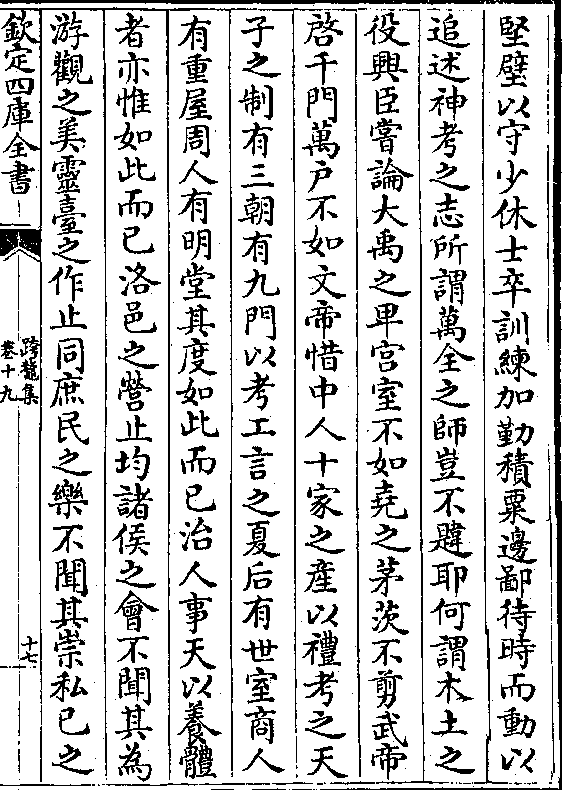 堅壁以守少休士卒訓練加勤積粟邊鄙待時而動以
追述神考之志所謂萬全之師豈不韙耶何謂木土之
役興臣嘗論大禹之卑宫室不如堯之茅茨不剪武帝
啓千門萬户不如文帝惜中人十家之産以禮考之天
子之制有三朝有九門以考工言之夏后有世室商人
有重屋周人有明堂其度如此而已治人事天以養體
者亦惟如此而已洛邑之營止均諸侯之會不聞其為
游觀之美靈臺之作止同庶民之樂不聞其崇私已之
欽定四庫全書
跨鼇集
卷十九
十七